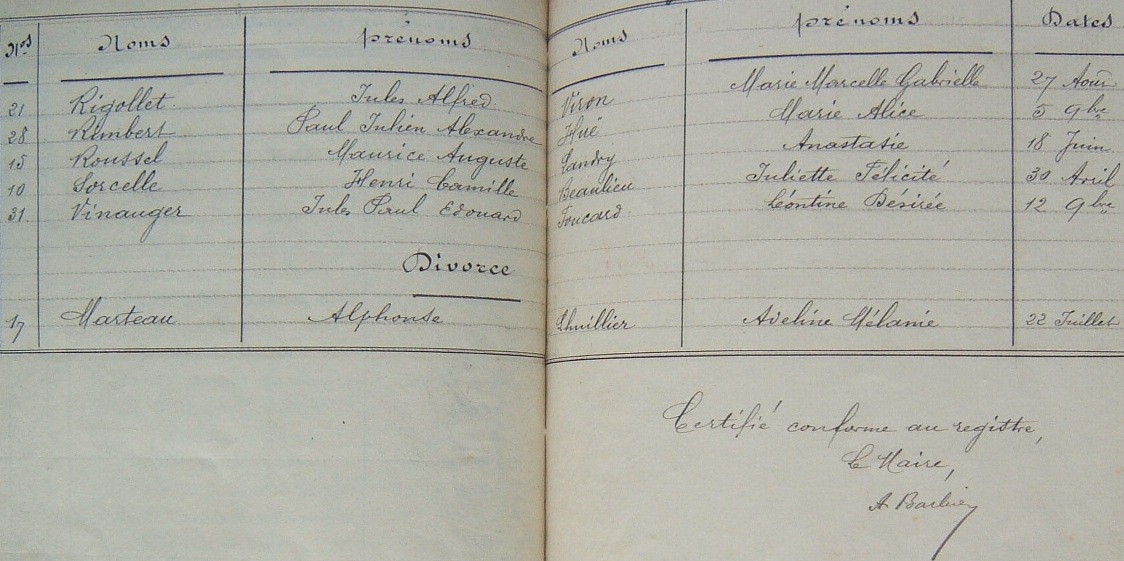 Nos Noms prénoms Noms prénoms Dates
21 Rigollet Jules Alfred Viron Marie Marcelle Gabrielle 27 Aout
28 Rimbert Paul Julien Alexandre Hué Marie Alice 5 9bre
15 Roussel Maurice Auguste Landry Anastasie 18 Juin
10 Sorcelle Henri Camille Beaulieu Juliette Félicité 30 Avril
31 Vinauger Jules Paul Edouard Foucard Léontine Désirée 12 9bre
Divorce
17 Marteau Alphonse Lhuillier Aveline Mélanie 22 Juillet
Certifié conforme au registre,
Le Maire,
A Barbier